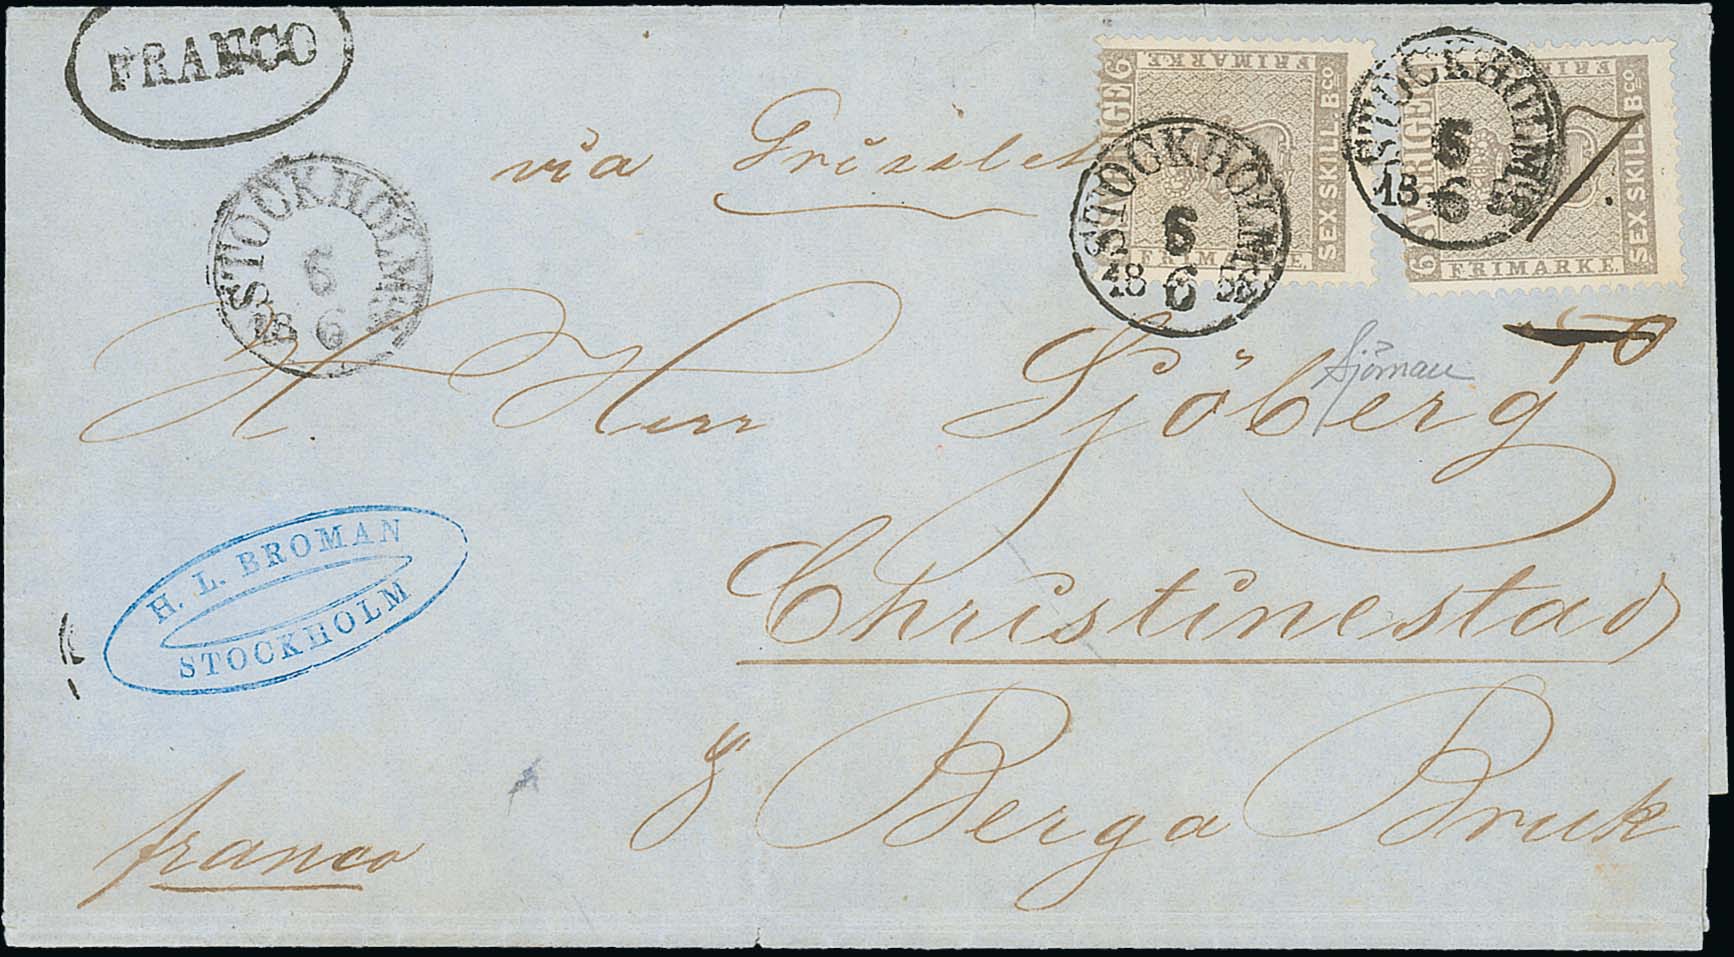 FRANCO
via Grisslet
SVERIGE 6
FRIMARKE
FRIMARKE.
SEX SKILL. Bco
STOCKHOLM
6
18 6 58
SVERIGE
6
FRIMARKE
FRIMARKE.
SEX SKILL Bco
STOCKHOLM
6
18 6 58
7
STOCKHOLM
6
18 6
H. Herr Sjöberg
Christinestad
H. L. BROMAN
STOCKHOLM
Berga Bruk
franco